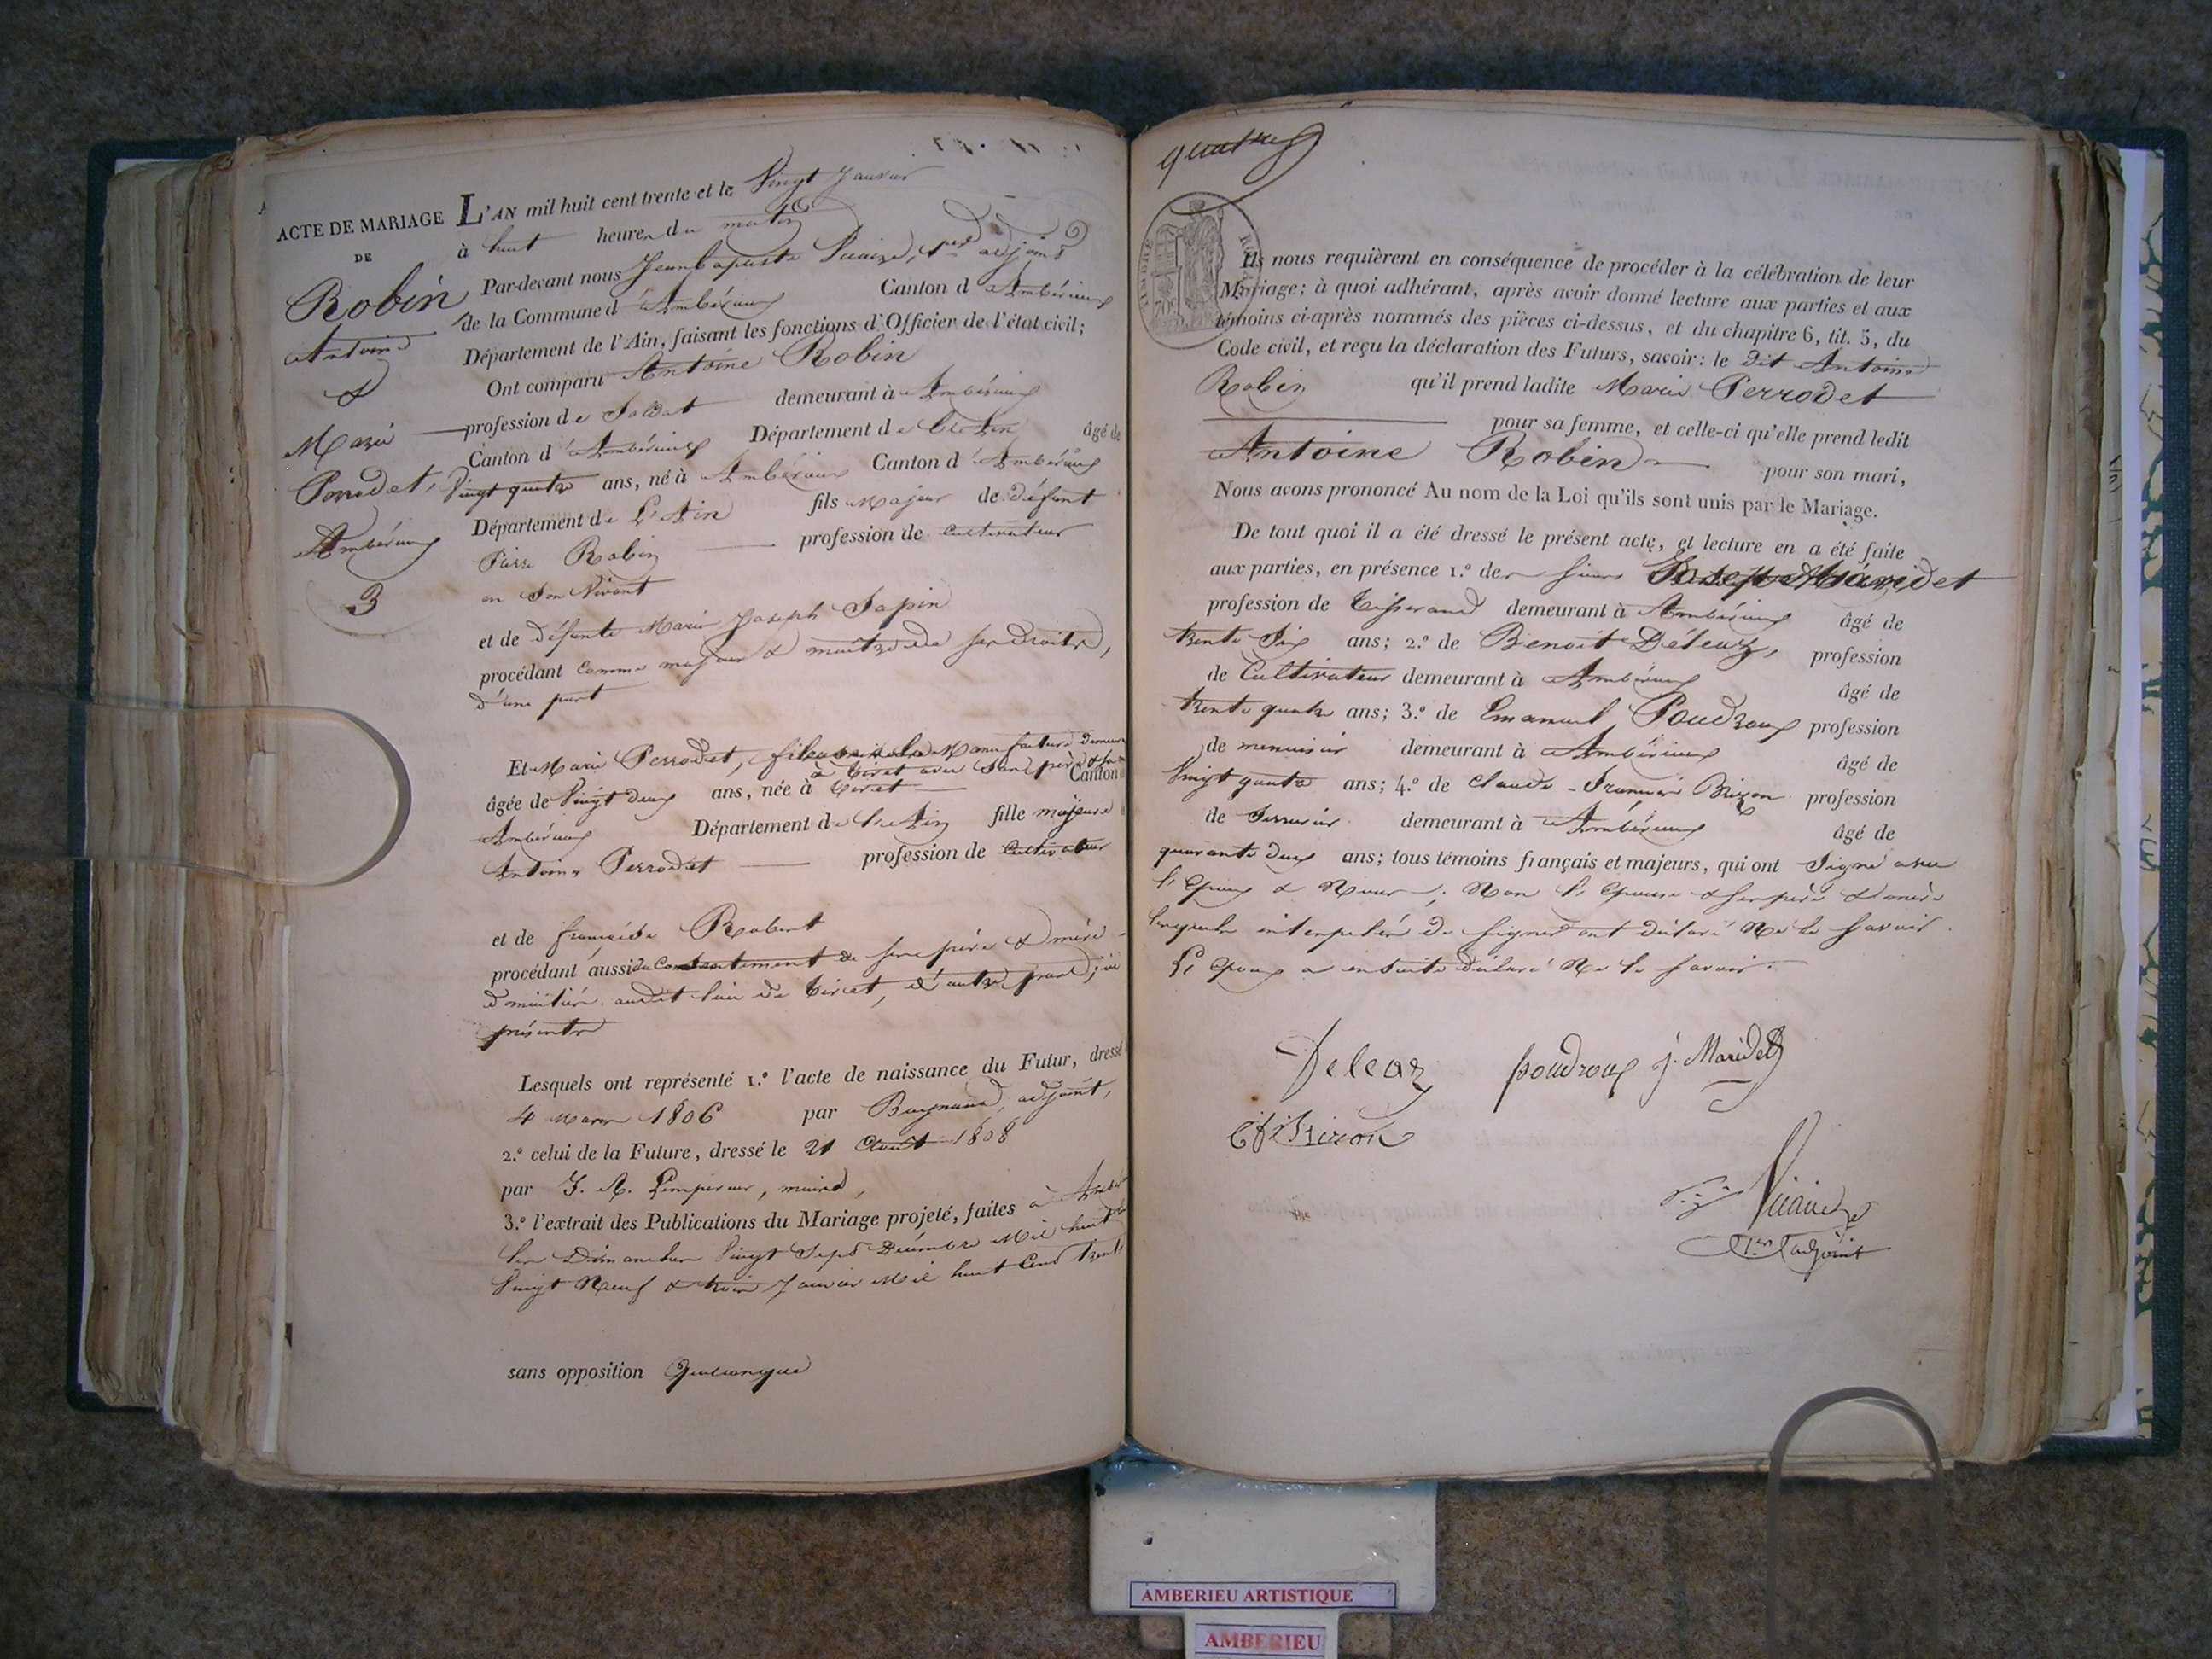 ACTE DE MARIAGE
DE
Robin
Antoine
&
Marie
Perrodet,
Ambérieux
3
L'AN mil huit cent trente et le Vingt Janvier
à huit heures du matin
Par-devant nous Jean Baptiste Vicaire, 1er adjoint
de la Commune d'Ambérieux Canton d'Ambérieux
Département de l'Ain, faisant les fonctions d'Officier de l'état civil;
Ont comparu Antoine Robin
profession de Soldat demeurant à Ambérieux
Canton d'Ambérieux Département de l'Ain âgé de
Vingt quatre ans, né à Ambérieux Canton d'Ambérieux
Département de L'Ain fils Majeur de défunt
Pierre Robin profession de Cultivateur
en Son Vivant
et de défunte Marie Joseph Sapin
procédant Comme majeur & maître de ses droits,
d'une part
Et Marie Perrodet, manufacture
à Tiret avec Son père &
Canton
âgée de Vingt deux ans, née à Tiret
Ambérieux Département de l'Ain fille majeure
Antoine Perrodet profession de Cultivateur
et de françoise Robert
procédant aussi du Consentement de ses père & mère
domiciliés audit lieu de Tiret, d'autre part, ici
présents
Lesquels ont représenté 1.º l'acte de naissance du Futur, dressé
4 Mars 1806 par adjoint,
2.º celui de la Future, dressé le 21 Août 1808
par J. A. Lempereur, maire,
3.º l'extrait des Publications du Mariage projeté, faites à
les Dimanches Vingt Sept Décembre Mil huit
Vingt Neuf & trois Janvier Mil huit Cent trente
sans opposition Quelconque
quatre
TIMBRE ROYAL
Ils nous requièrent en conséquence de procéder à la célébration de leur
Mariage; à quoi adhérant, après avoir donné lecture aux parties et aux
témoins ci-après nommés des pièces ci-dessus, et du chapitre 6, tit. 5, du
Code civil, et reçu la déclaration des Futurs, savoir: le dit Antoine
Robin qu'il prend ladite Marie Perrodet
pour sa femme, et celle-ci qu'elle prend ledit
Antoine Robin pour son mari,
Nous avons prononcé Au nom de la Loi qu'ils sont unis par le Mariage.
De tout quoi il a été dressé le présent acte, et lecture en a été faite
aux parties, en présence 1.º des Sieurs Joseph Maridet
profession de Tisserand demeurant à Ambérieux âgé de
trente Six ans; 2.º de Benoit Déleaz, profession
de Cultivateur demeurant à Ambérieux âgé de
trente quatre ans; 3.º de Emanuel Poudroux profession
de menuisier demeurant à Ambérieux âgé de
Vingt quatre ans; 4.º de Claude-François Brizon profession
de Serrurier demeurant à Ambérieux âgé de
quarante deux ans; tous témoins français et majeurs, qui ont Signé avec
l'Epoux & Nous; Non l'Epouse & ses père & mère
lesquels interpelés de Signer ont déclaré Ne le Savoir.
L'Epoux a ensuite déclaré Ne le Savoir.
Deleaz poudroux j. Maridet
Cf Brizon
Vicaire
1er adjoint
AMBERIEU ARTISTIQUE
AMBERIEU